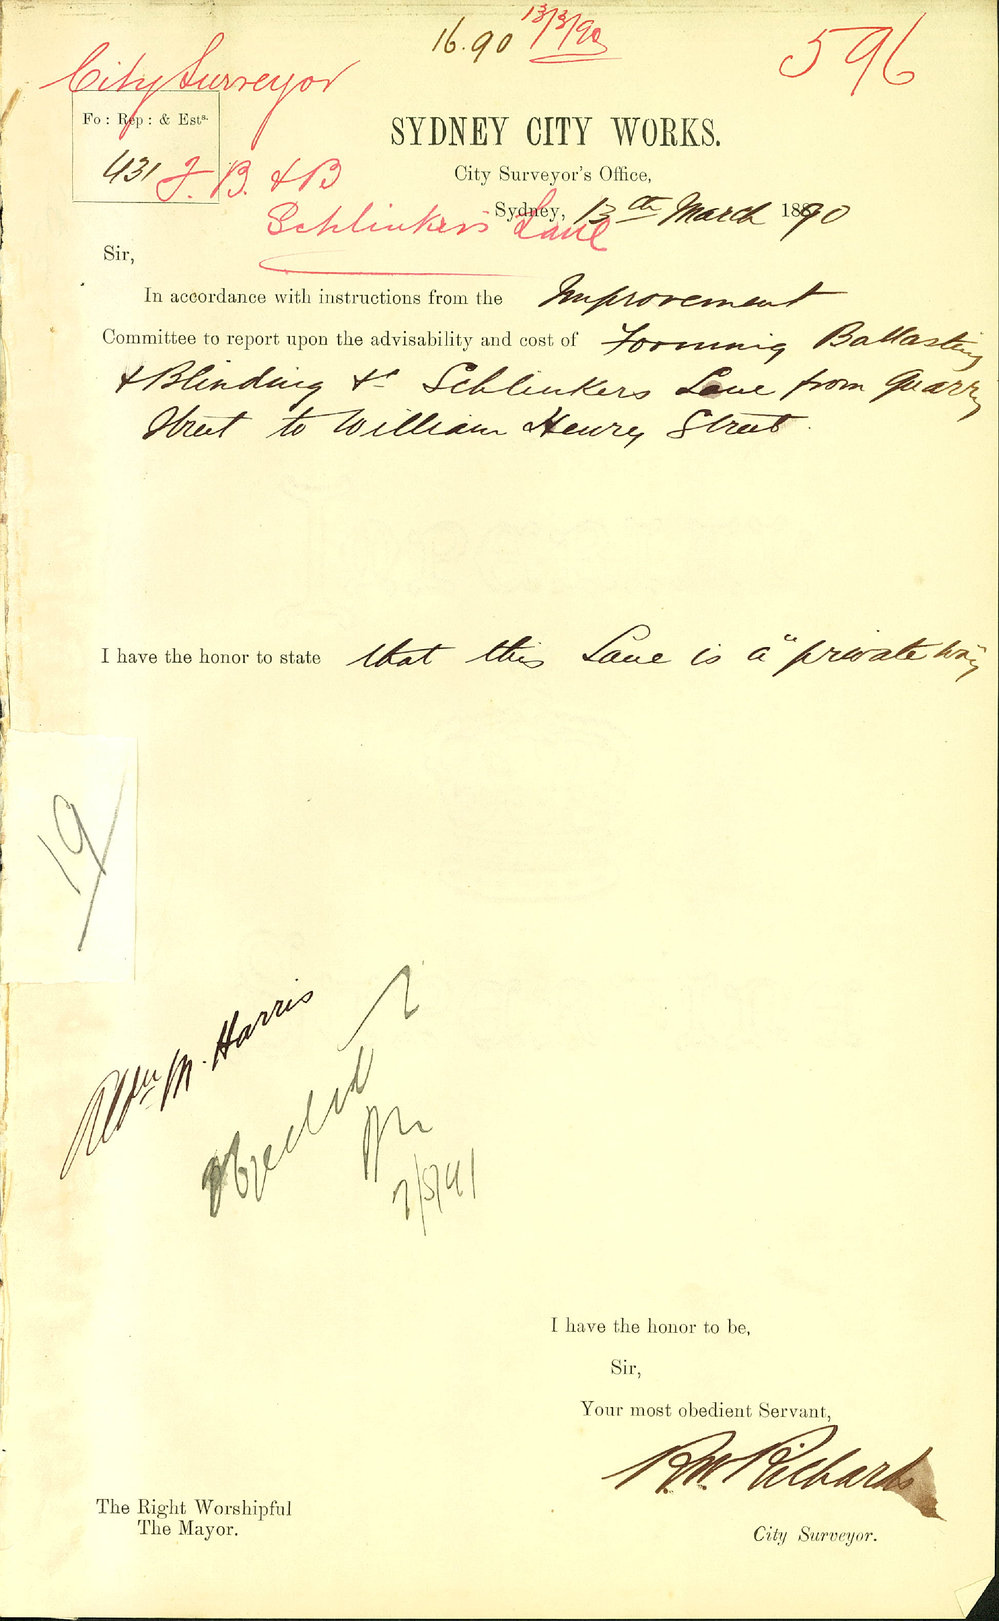 16.90 13/3/90
596
City Surveyor
Fo: Rep: & Ests.
431
F. B. & B
Schlinker's Lane
SYDNEY CITY WORKS.
City Surveyor's Office,
Sydney, 13th March 1890
Sir,
In accordance with instructions from the Improvement
Committee to report upon the advisability and cost of Forming Ballasting
& Blinding &c Schlinkers Lane from Quarry
Street to William Henry Street.
I have the honor to state that this Lane is a "private way"
19
Aldn M. Harris
7/5/91
I have the honor to be,
Sir,
Your most obedient Servant,
R.W. Richards
City Surveyor.
The Right Worshipful
The Mayor.